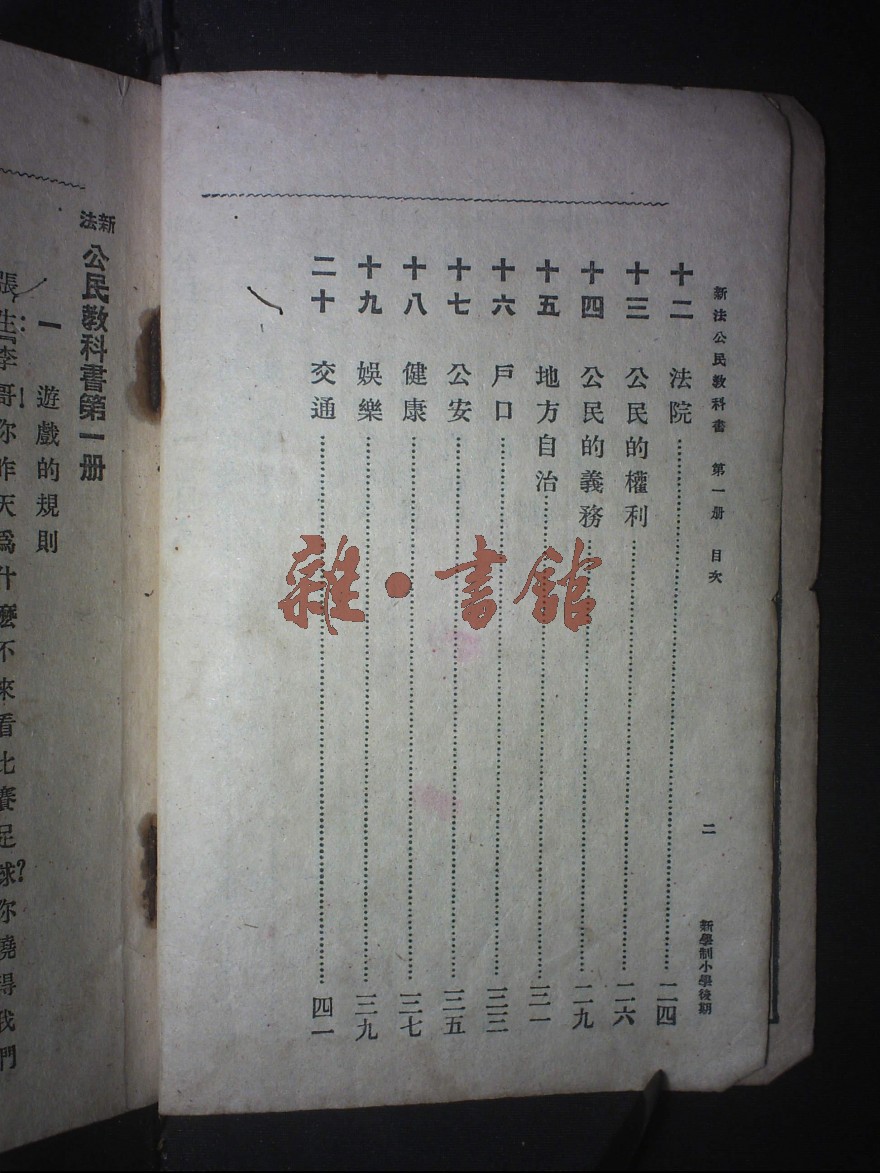 新法公民教科書 第一册 目次
二
新學制小學後期
十二 法院 二四
十三 公民的權利 二六
十四 公民的義務 二九
十五 地方自治 三一
十六 戶口 三三
十七 公安 三五
十八 健康 三七
十九 娛樂 三九
二十 交通 四一
雜·書館
新法 公民教科書第一册
一 遊戲的規則
張生:『李哥!你昨天爲什麽不來看比賽足球?你曉得我們